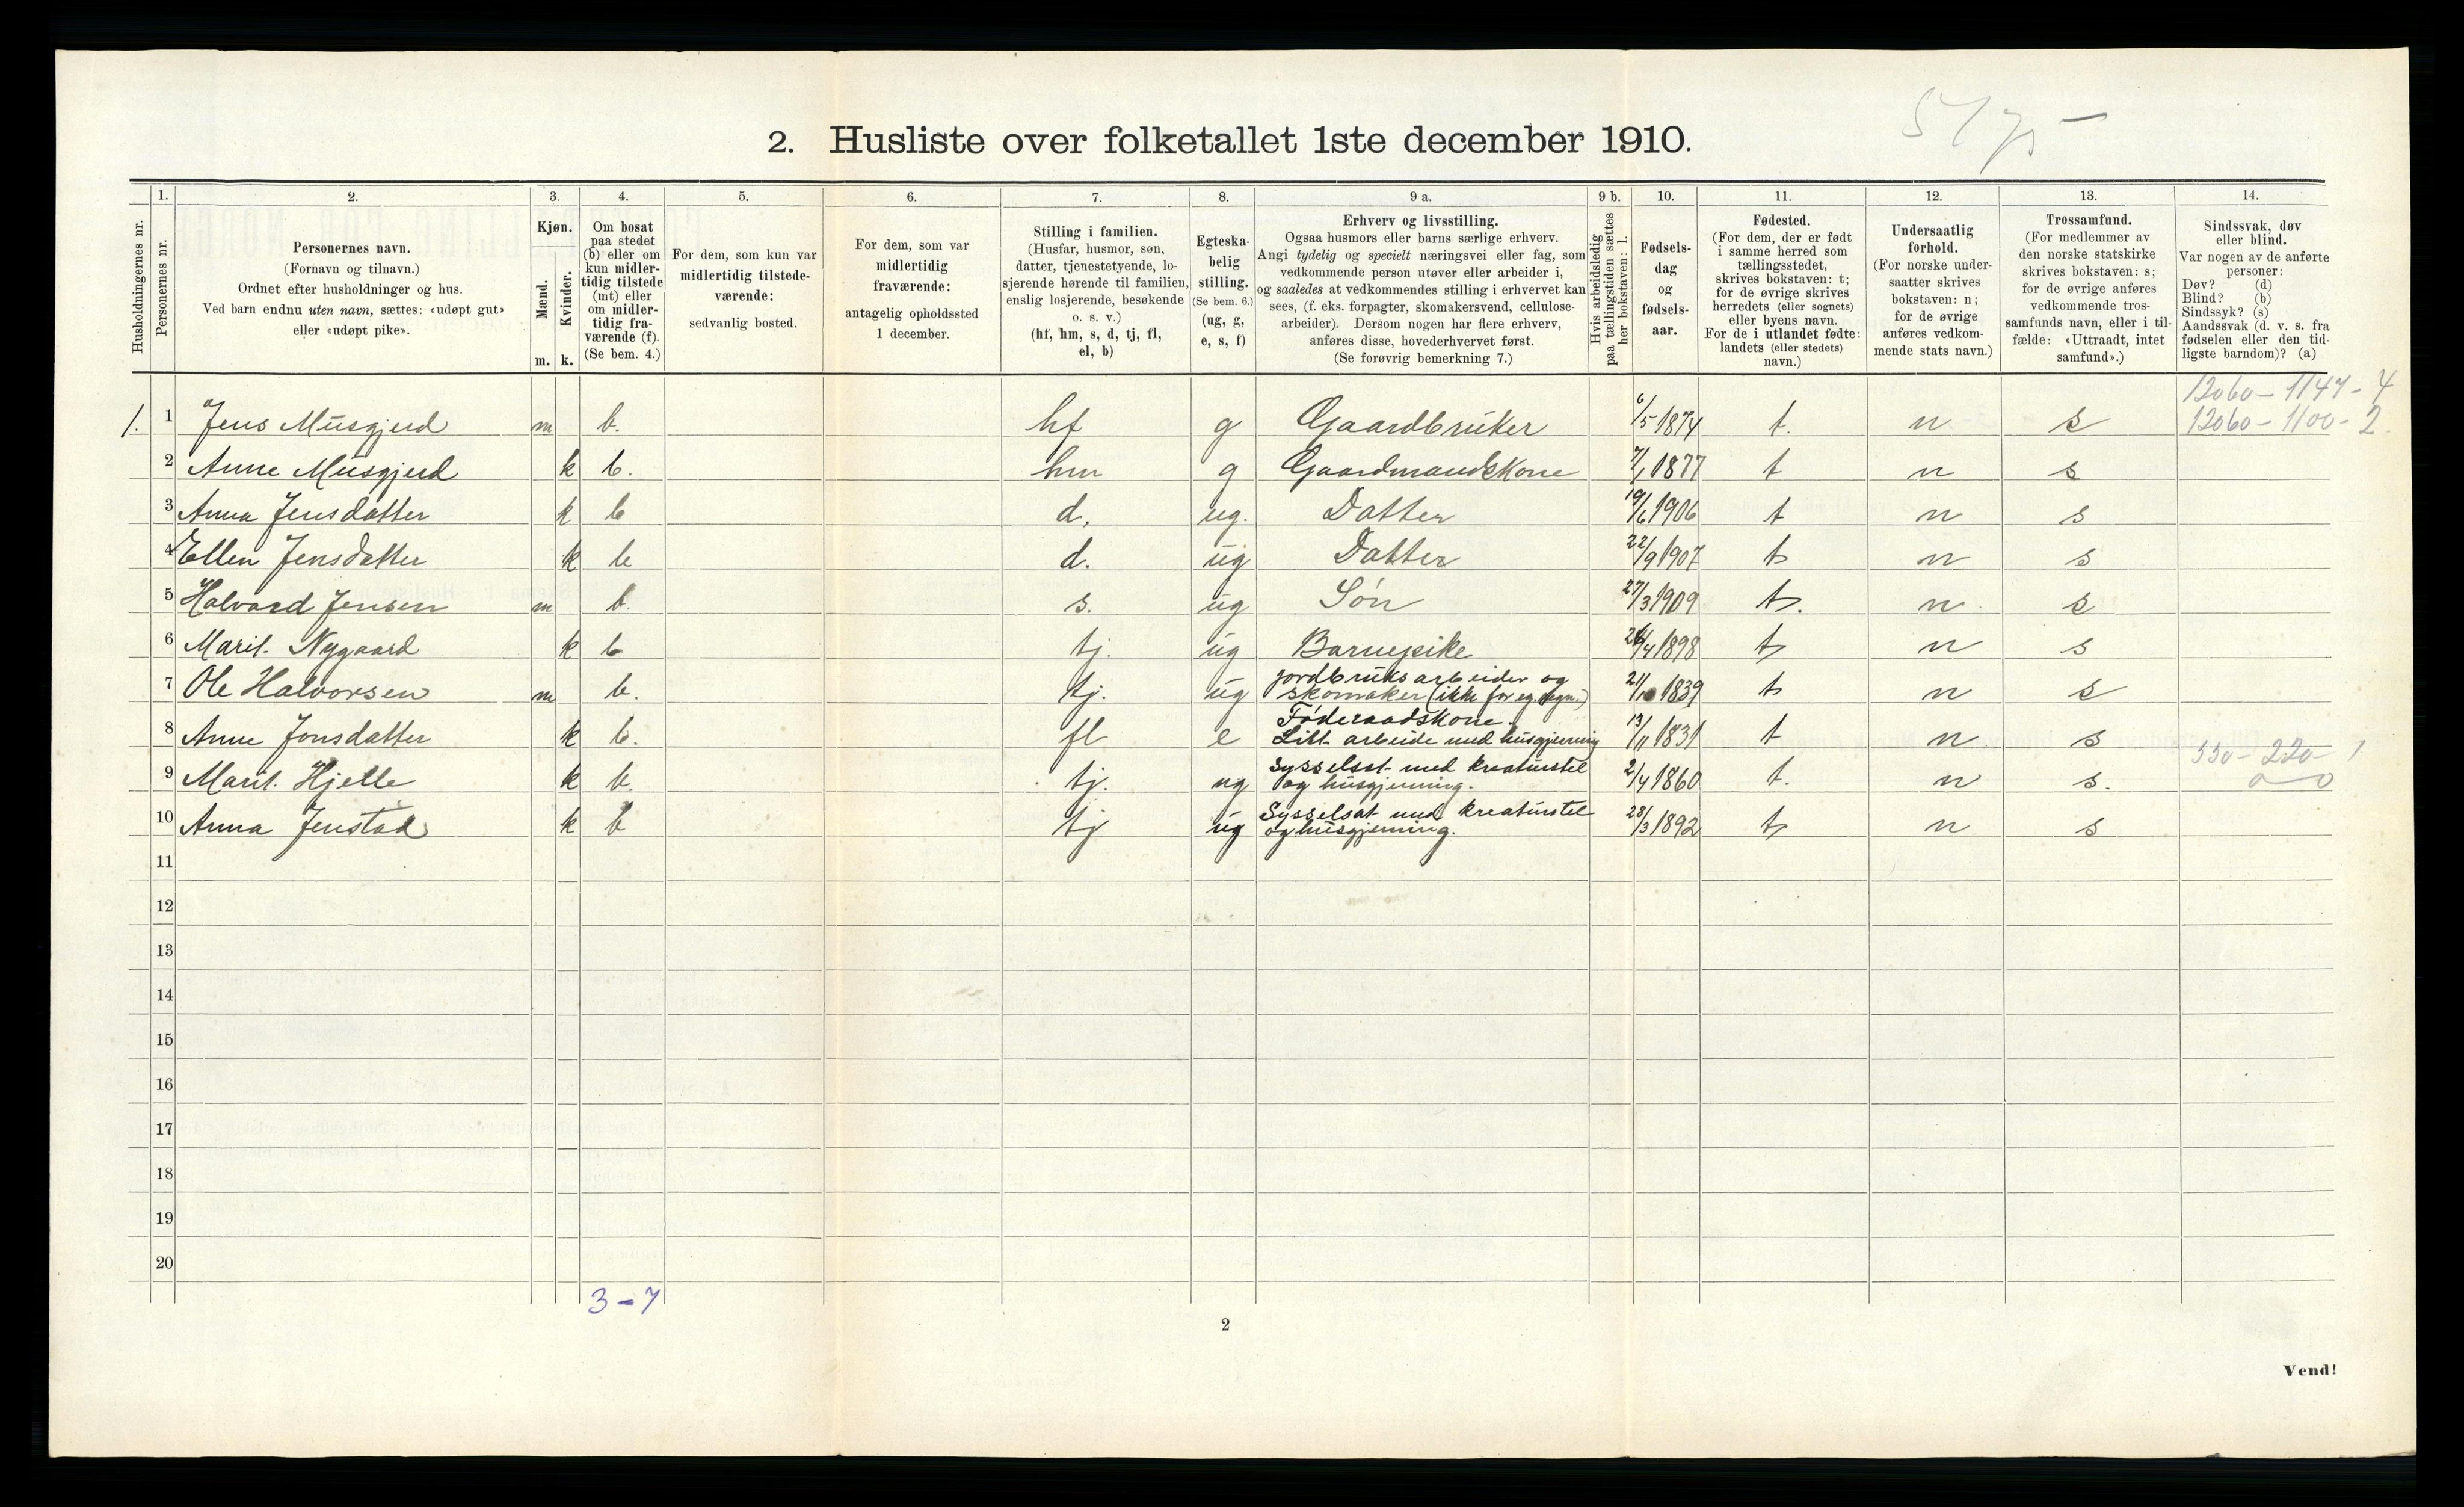 2. Husliste over folketallet 1ste december 1910.
1. 2. 3. 4. 5. 6. 7. 8. 9 a. 9 b. 10. 11. 12. 13. 14.
Husholdningernes nr.
Personernes nr.
Personernes navn.
(Fornavn og tilnavn.)
Ordnet efter husholdninger og hus.
Ved barn endnu uten navn, sættes: «udøpt gut»
eller «udøpt pike».
Kjøn.
Mænd.
Kvinder.
m. k.
Om bosat
paa stedet
(b) eller om
kun midler-
tidig tilstede
(mt) eller
om midler-
tidig fra-
værende (f).
(Se bem. 4.)
For dem, som kun var
midlertidig tilstede-
værende:
sedvanlig bosted.
For dem, som var
midlertidig
fraværende:
antagelig opholdssted
1 december.
Stilling i familien.
(Husfar, husmor, søn,
datter, tjenestetyende, lo-
sjerende hørende til familien,
enslig losjerende, besøkende
o. s. v.)
(hf, hm, s, d, tj, fl,
el, b)
Egteska-
belig
stilling.
(Se bem. 6.)
(ug, g,
e, s, f)
Erhverv og livsstilling.
Ogsaa husmors eller barns særlige erhverv.
Angi tydelig og specielt næringsvei eller fag, som
vedkommende person utøver eller arbeider i,
og saaledes at vedkommendes stilling i erhvervet kan
sees, (f. eks. forpagter, skomakersvend, cellulose-
arbeider). Dersom nogen har flere erhverv,
anføres disse, hovederhvervet først.
(Se forøvrig bemerkning 7.)
Hvis arbeidsledig
paa tællingstiden sættes
her bokstaven: l.
Fødsels-
dag
og
fødsels-
aar.
Fødested.
(For dem, der er født
i samme herred som
tællingsstedet,
skrives bokstaven: t;
for de øvrige skrives
herredets (eller sognets)
eller byens navn.
For de i utlandet fødte:
landets (eller stedets)
navn.)
Undersaatlig
forhold.
(For norske under-
saatter skrives
bokstaven: n;
for de øvrige
anføres vedkom-
mende stats navn.)
Trossamfund.
(For medlemmer av
den norske statskirke
skrives bokstaven: s;
for de øvrige anføres
vedkommende tros-
samfunds navn, eller i til-
fælde: «Uttraadt, intet
samfund».)
Sindssvak, døv
eller blind.
Var nogen av de anførte
personer:
Døv? (d)
Blind? (b)
Sindssyk? (s)
Aandssvak (d. v. s. fra
fødselen eller den tid-
ligste barndom)? (a)
12060-1147-4
1. 1 Jens Musgjerd m b. hf g Gaardbruker 6/5 1874 t. n s 12060-1100-2.
2 Anne Musgjerd k b. hm g Gaardmandskone 7/1 1877 t n s
3 Anna Jensdatter k b d. ug. Datter 19/6 1906 t n s
4 Ellen Jensdatter k b d. ug Datter 22/9 1907 t n s
5 Halvard Jensen m b. s. ug Søn 27/3 1909 t. n s
6 Marit Nygaard k b tj. ug Barnepike 26/4 1898 t n s
7 Ole Halvorsen m b. tj. ug jordbruksarbeider og
skomaker (ikke for eg. regn.) 21/10 1839 t n s
8 Anne Jonsdatter k b. fl e Føderaadskone.
Litt arbeide med husgjerning 13/11 1831 t n s
9 Marit Hjelle k b. tj. ug Sysselsat med kreaturstel
og husgjerning. 2/4 1860 t. n s. 550-220-1
10 Anna Jenstad k b tj ug Sysselsat med kreaturstel
og husgjerning. 28/3 1892 t n s
11
12
13
14
15
16
17
18
19
20
3-7
2
Vend!